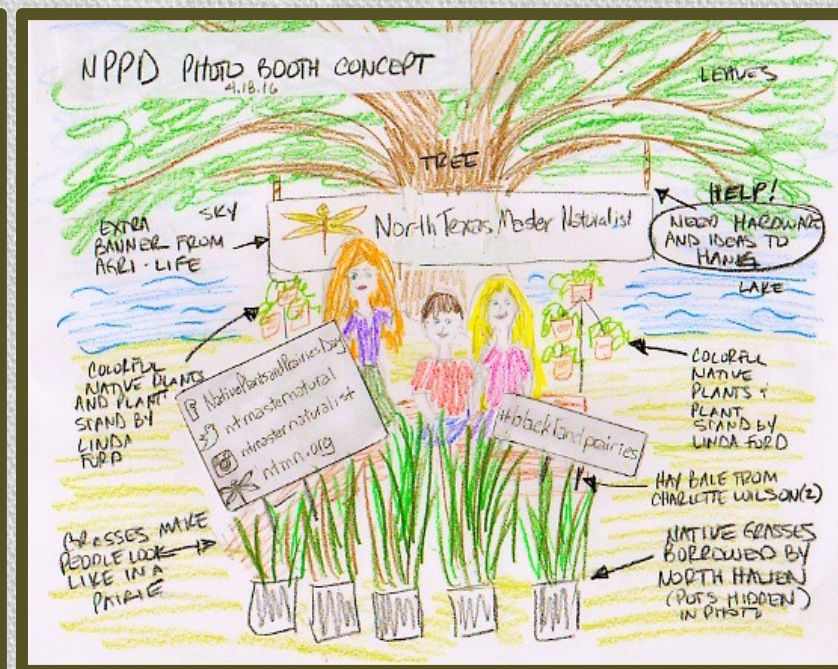 NPPD PHOTO BOOTH CONCEPT
4.18.16
LEAVES
TREE
SKY
EXTRA
BANNER FROM
AGRI-LIFE
North Texas Master Naturalist
HELP!
NEED HARDWARE
AND IDEAS TO
HANG
LAKE
COLORFUL
NATIVE PLANTS
AND PLANT
STAND BY
LINDA
FORD
NativePlantsandPrairiesDay
ntmasternatural
ntmasternaturalist
ntmn.org
#blacklandprairies
COLORFUL
NATIVE
PLANTS &
PLANT
STAND BY
LINDA FORD
HAY BALE FROM
CHARLETTE WILSON(2)
GRASSES MAKE
PEOPLE LOOK
LIKE IN A
PAIRIE
NATIVE GRASSES
BORROWED BY
NORTH HAVEN
(POTS HIDDEN)
IN PHOTO